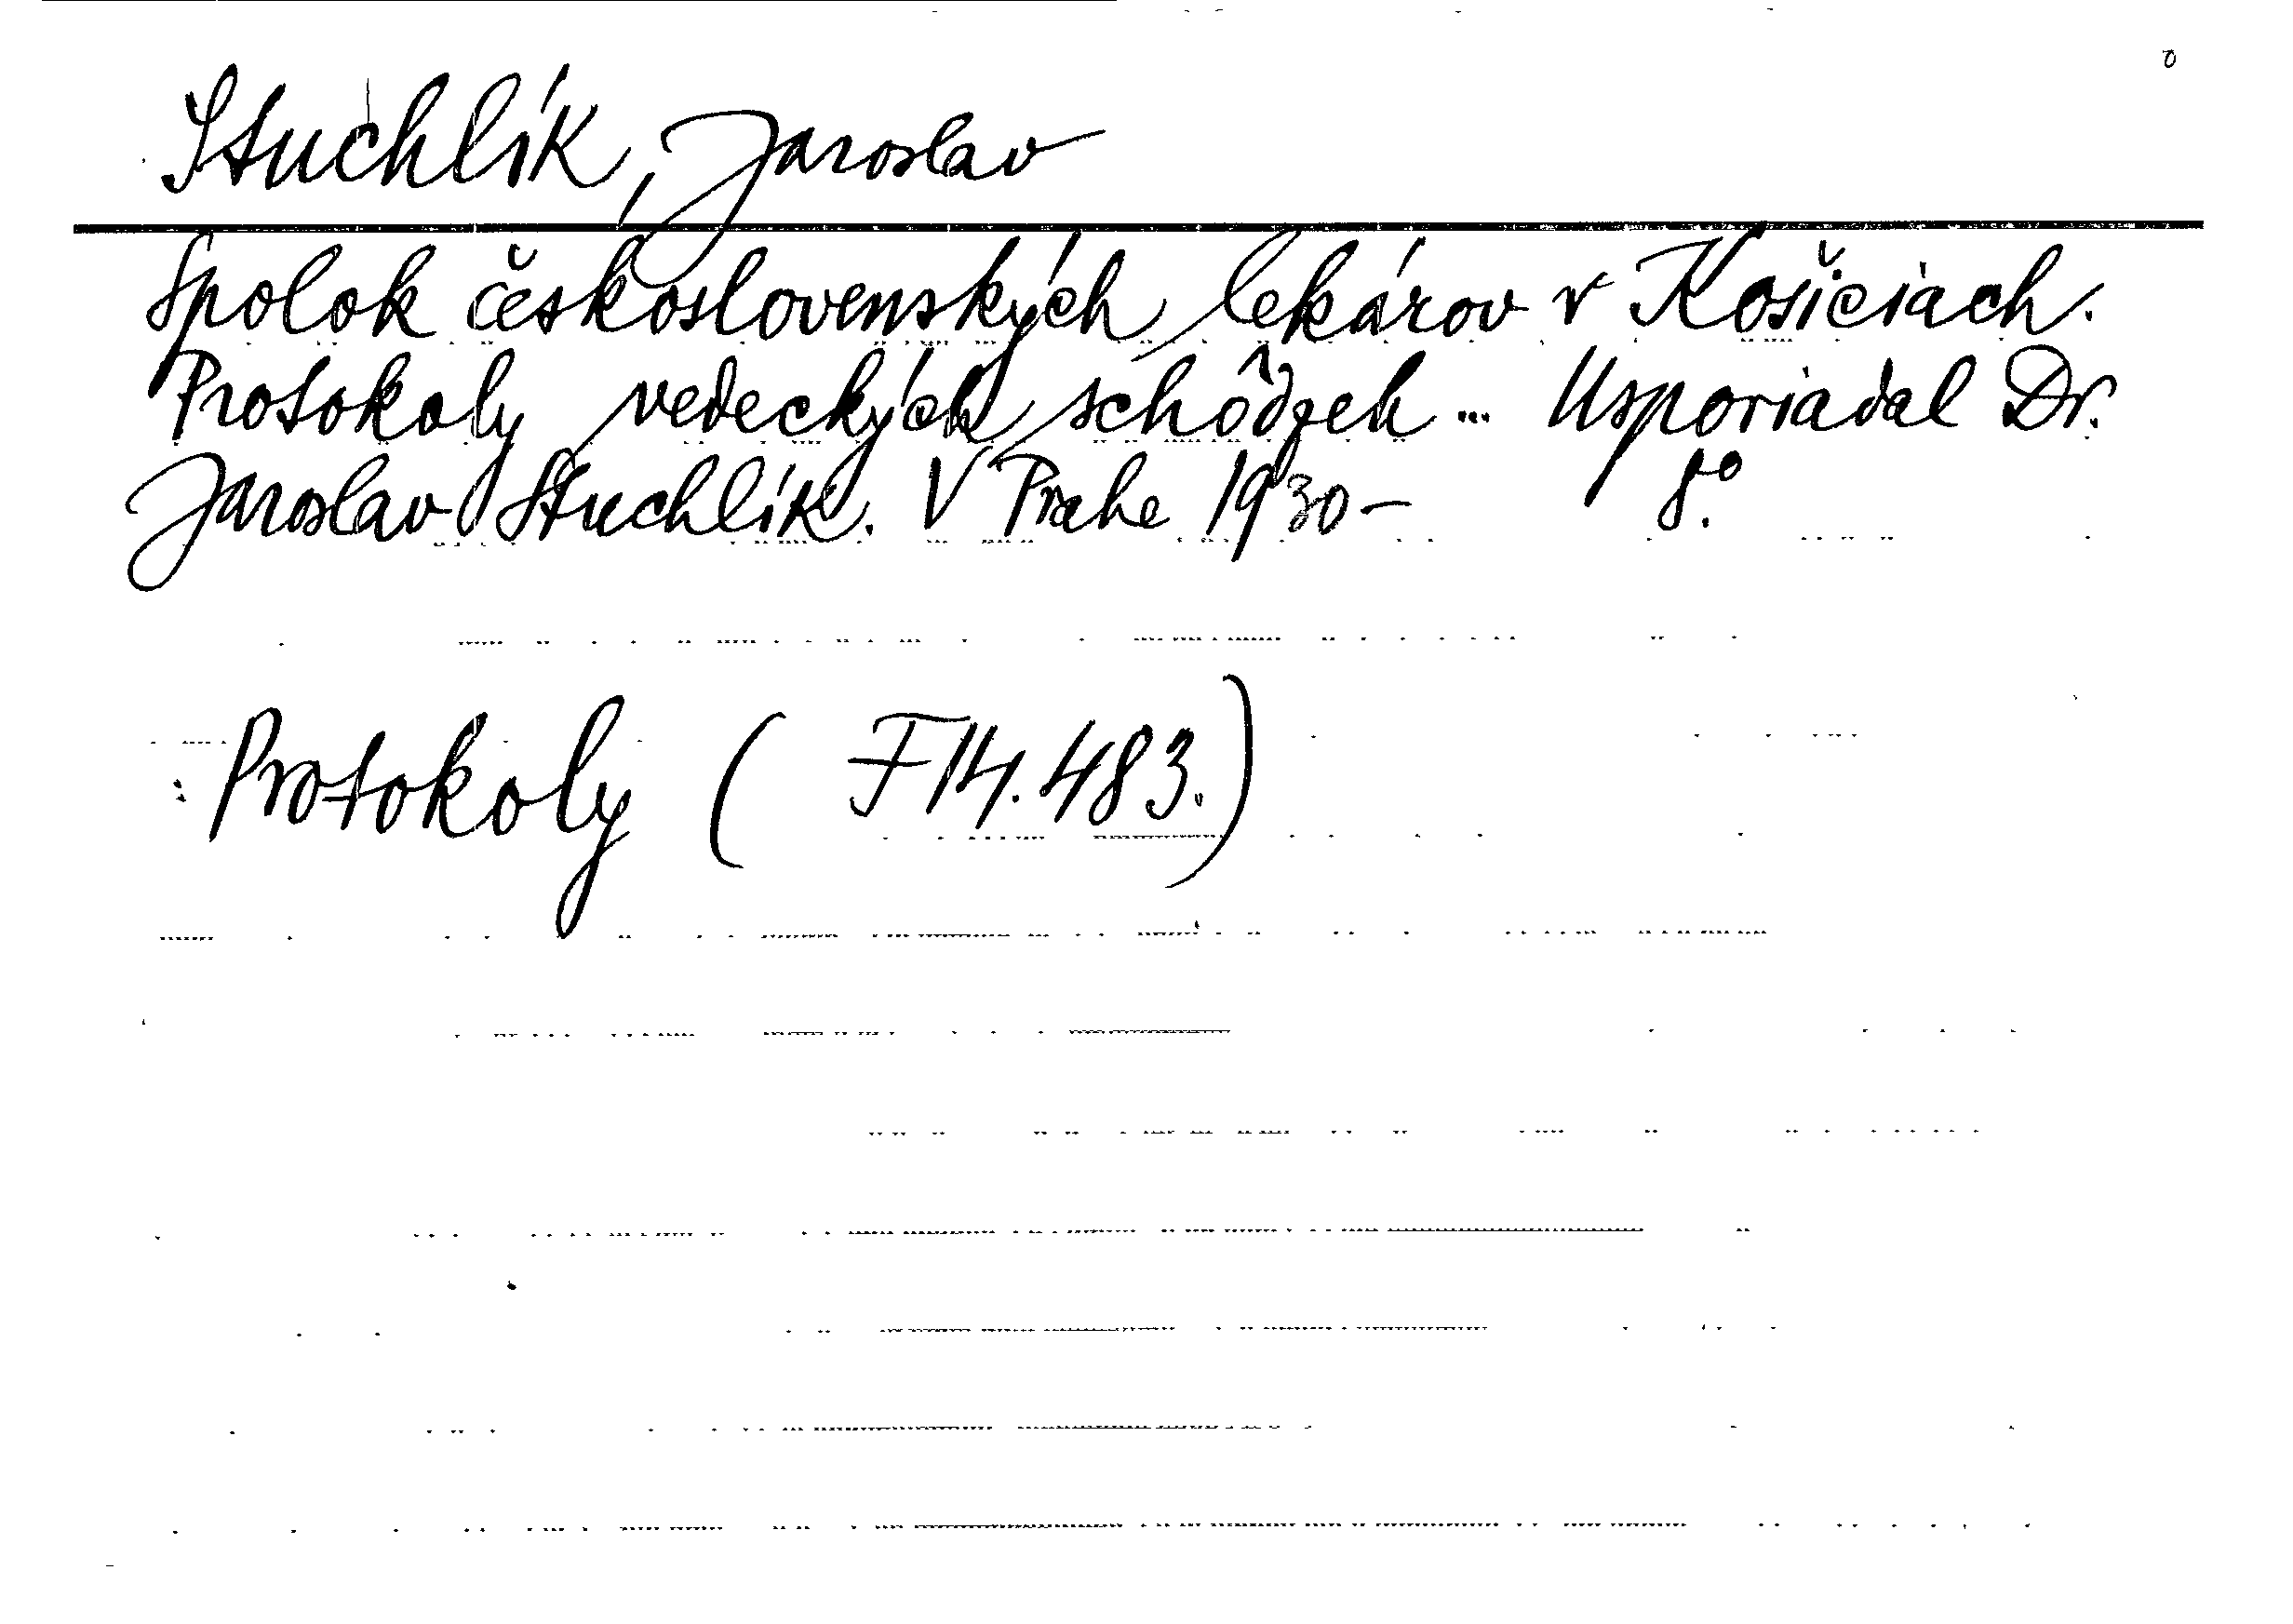 Stuchlík, Jaroslav
Spolok československých lekárov v Košiciach.
Protokoly vedeckých schôdzek ... Usporiadal Dr.
Jaroslav Stuchlík. V Prahe 1930– 8°.
Protokoly ( F 14.483.)